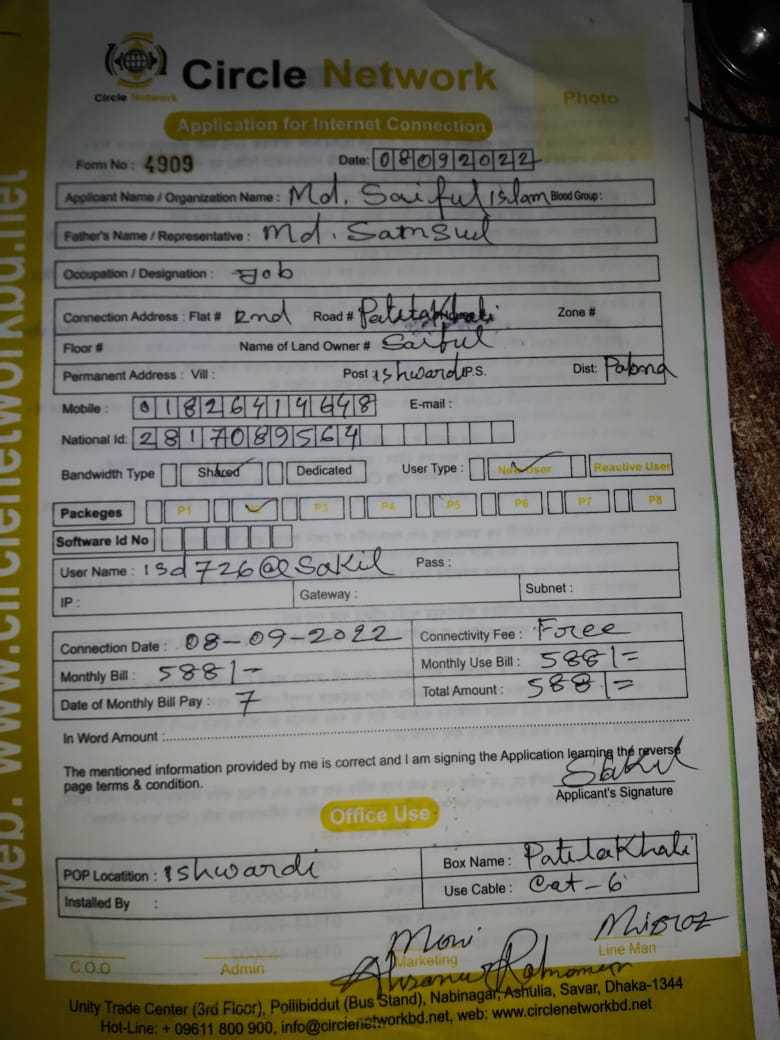 Circle Network
Circle Network
Photo
Application for Internet Connection
Form No : 4909 Date: 08092022
Applicant Name / Organization Name : Md. Saiful islam Blood Group :
Father's Name / Representative : Md. Samsul
Occupation / Designation : Job
Connection Address : Flat # 2nd Road # Patilakhali Zone #
Floor # Name of Land Owner # Saiful
Permanent Address : Vill : Post : ishwardi P.S. Dist: Pabna
Mobile : 01826414648 E-mail :
National Id: 2817089564
Bandwidth Type Shared Dedicated User Type : New User Reactive User
Packeges P1 P2 P3 P4 P5 P6 P7 P8
Software Id No
User Name : isd726@Sakil Pass :
IP : Gateway : Subnet :
Connection Date : 08-09-2022 Connectivity Fee : Free
Monthly Bill : 588/- Monthly Use Bill : 588/=
Date of Monthly Bill Pay : 7 Total Amount : 588/=
In Word Amount :
The mentioned information provided by me is correct and I am signing the Application learning the reverse
page terms & condition.
Sakil
Applicant's Signature
Office Use
POP Locatition : Ishwardi Box Name : Patilakhali
Installed By : Use Cable : Cat-6
Moni
C.O.O Admin Marketing Line Man
Unity Trade Center (3rd Floor), Pollibiddut (Bus Stand), Nabinagar, Ashulia, Savar, Dhaka-1344
Hot-Line: + 09611 800 900, info@circlenetworkbd.net, web: www.circlenetworkbd.net
web: www.circlenetworkbd.net